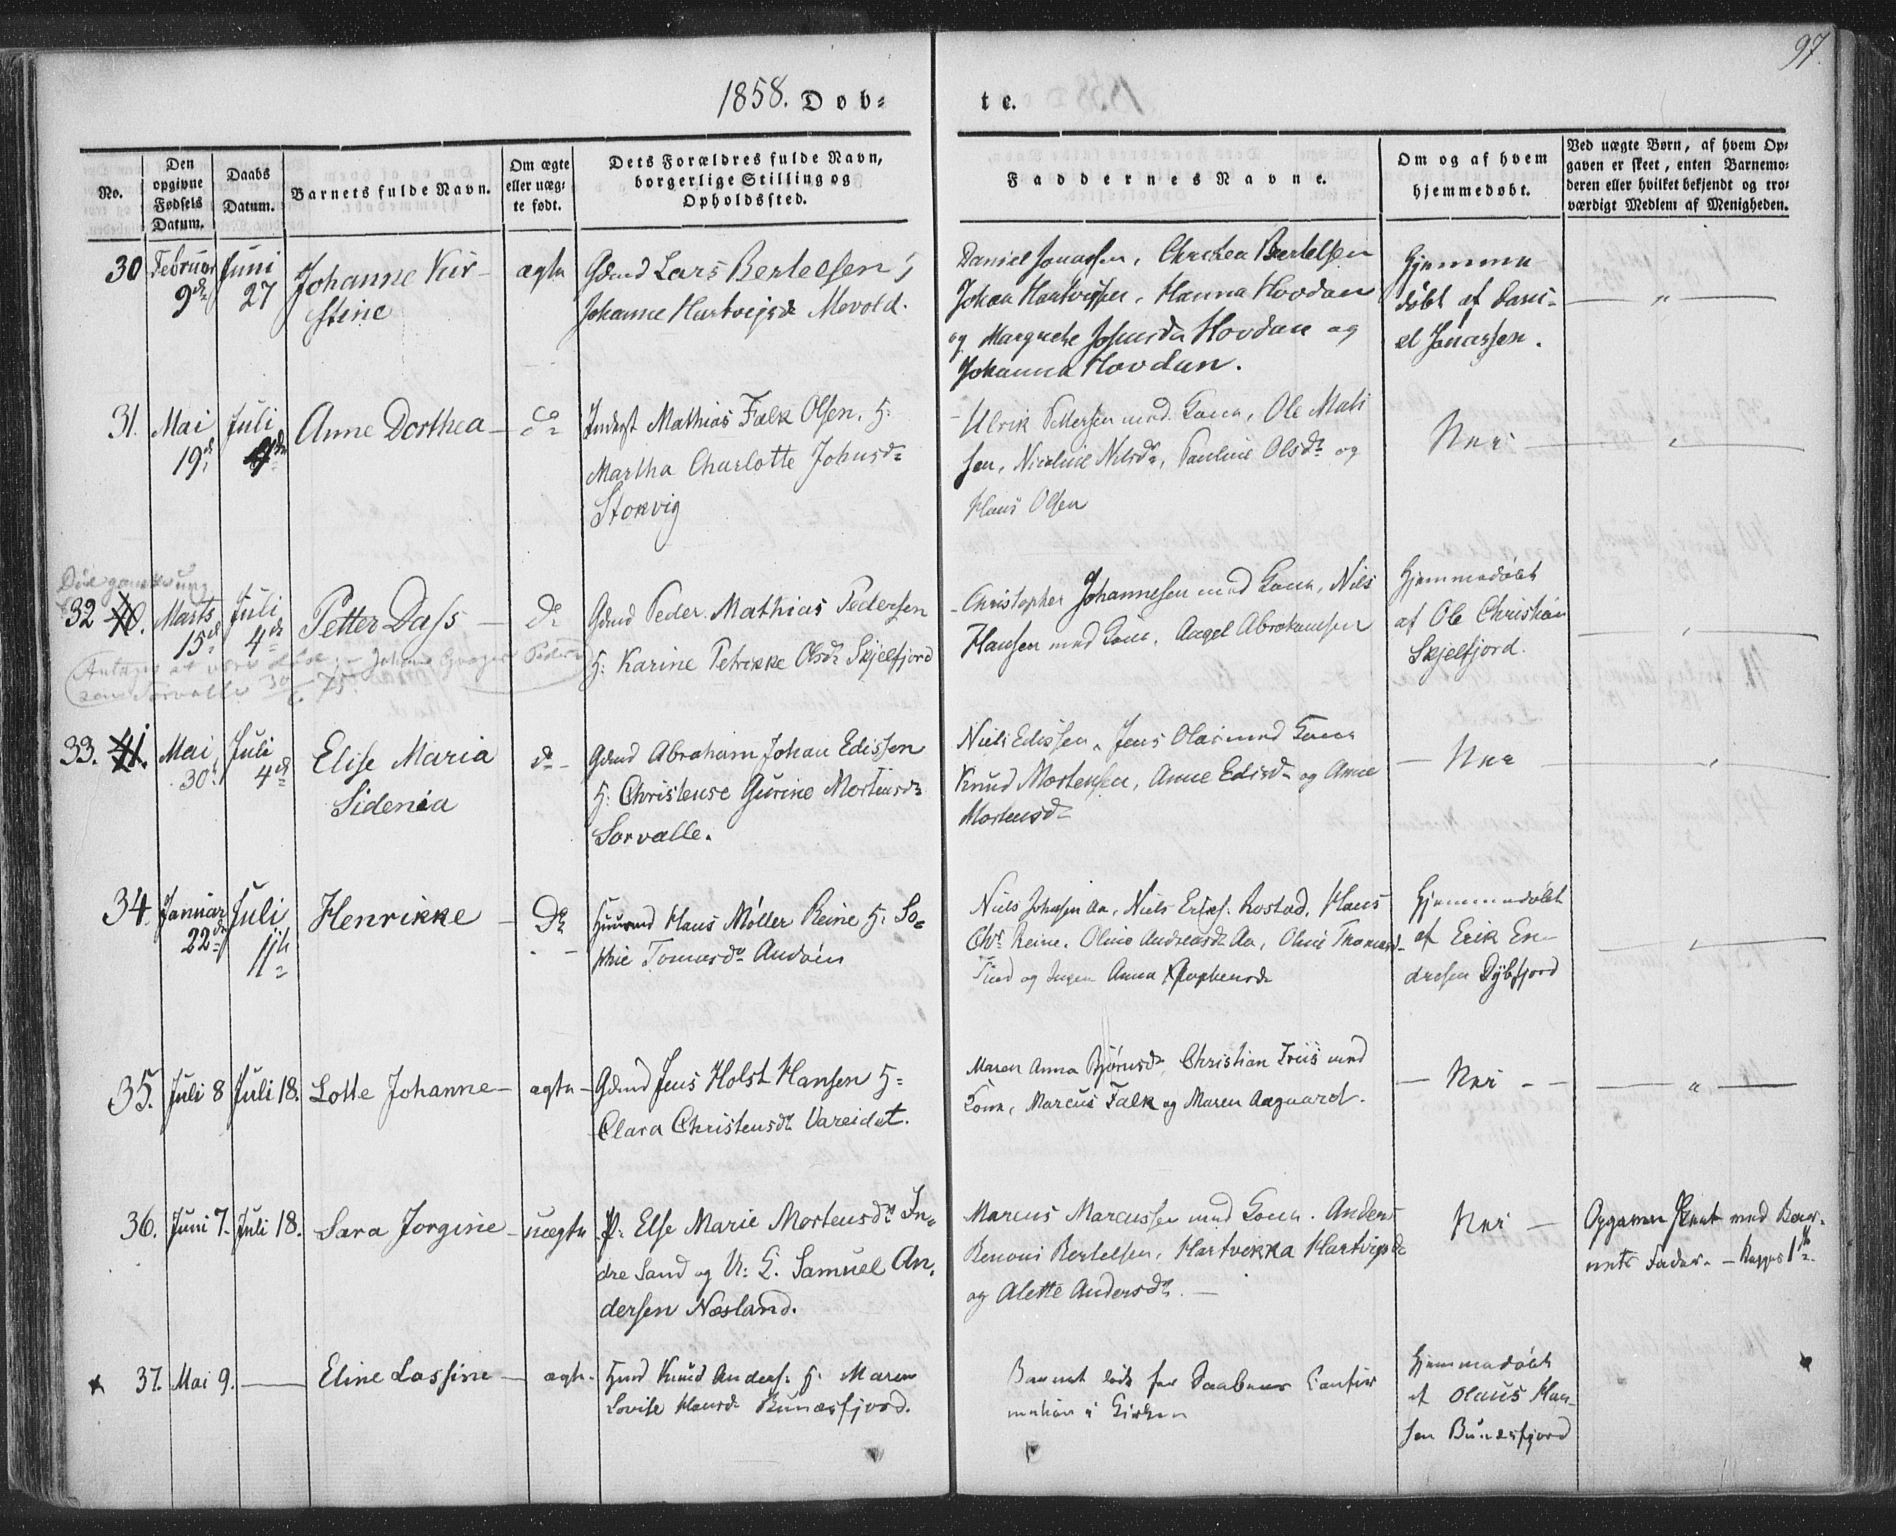 97.
1858. Døb-
te.
No.
Den opgivne Fødsels Datum.
Daabs Datum.
Barnets fulde Navn.
Om ægte eller uæg- te født.
Dets Forældres fulde Navn, borgerlige Stilling og Opholdssted.
Faddernes Navne.
Om og af hvem hjemmedøbt.
Ved uægte Børn, af hvem Op- gaven er skeet, enten Barnemo- deren eller hvilket bekjendt og tro- værdigt Medlem af Menigheden.
30 Februar Juni Johanne Kir-
9de 27 stine
ægte
Gdmd Lars Bertelsen
Johanne Hartvigsd. Movold.
Daniel Jonassen, Bertelsen
Johan Hartvigsen, Hanna Hovdan
og Margrethe Hovdan og
Johanna Hovdan.
Hjemme
døbt af Dani-
el Jonassen.
"
31. Mai Juli Anne Dorthea
19de
do
Inderst Mathias Falk Olsen. H.
Martha Charlotte Johnsd.
Stokvig
Ulrik Pettersen med Kone, Ole Mati
sen, Nicoline Nilsd., Pauline Olsd. og
Hans Olsen
Nei
"
32 40. Marts Juli Petter Dass
15de 4de
do
Gdmd Peder Mathias Pedersen
H. Karine Petrikke Olsd. Skjelfjord
Christopher Johannesen med Kone, Nils
Hansen med Kone, Angel Abrahamsen
Hjemmedøbt
af Ole Christian
Skjelfjord.
"
33. 41. Mai Juli Elise Maria
30. 4de Sidenia
do
Gdmd Abraham Johan Edissen
H. Christense Gurine Mortensd.
Sørvalle.
Niels Edissen, Jens Olai med Kone
Knud Mortensen, Anne Edisd. og Anne
Mortensd.
Nei
"
34. Januar Juli Henrikke
22de 11te
Do
Huusmd Hans Møller Reine H. So-
phie Tomasd. Andøen
Niels Johnsen Aa, Niels Rostad, Hans
Chr. Reine. Oline Andreasd. Aa, Oline Thomasd.
og Anna
Hjemmedøbt
af Erik En-
dresen Dybfjord
"
35. Juli 8 Juli 18. Lotte Johanne
ægte
Gdmd Jens Holst Hansen H.
Clara Christensd. Vareidet.
Maren Anna Bjørnsd., Christian Friis med
Kone, Marcus Falk og Maren Aagaard.
Nei
"
36. Juni 7. Juli 18. Sara Jorgine
uægte
P. Else Marie Mortensd. In-
dre Sand og U. K. Samuel An-
dersen Næsland.
Marcus Marcussen med Kone. Anders
Benoni Bertelsen, Hartvikka Hartvigsd.
og Alette Andersd.
Nei
Opgaven skeet med Bar-
nets Fader.
37. Mai 9. Eline Lassine
ægte
Knud Anders. H. Maren
Lovise Hansd. Bunæsfjord.
Barnet døde før Daabens Confir
mation i Kirken
Hjemmedøbt
af Olaus Han-
sen Bunæsfjord